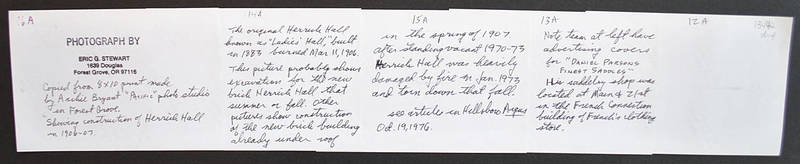 16A
PHOTOGRAPH BY
ERIC G. STEWART
1639 Douglas
Forest Grove, OR 97116
Copied from 8x10 print made
by Archie Bryant "Pacific" photo studio
in Forest Grove.
Showing construction of Herrick Hall
in 1906-07.
14A
The original Herrick Hall
known as "Ladies' Hall", built
in 1883 burned Mar 11, 1906.
This picture probably shows
excavation for the new
brick Herrick Hall that
summer or fall. Other
pictures show construction
of the new brick building
already under roof
15A
in the spring of 1907.
after standing vacant 1970-73
Herrick Hall was heavily
damaged by fire in Jan. 1973
and torn down that fall.
see articles in Hillsboro Argus
Oct. 19, 1976.
13A
Note team at left have
advertising covers
for "DANIEL PARSONS
FINEST SADDLES"
His saddlery shop was
located at Main & 21st
in the French Connection
building of French's clothing
store.
12A